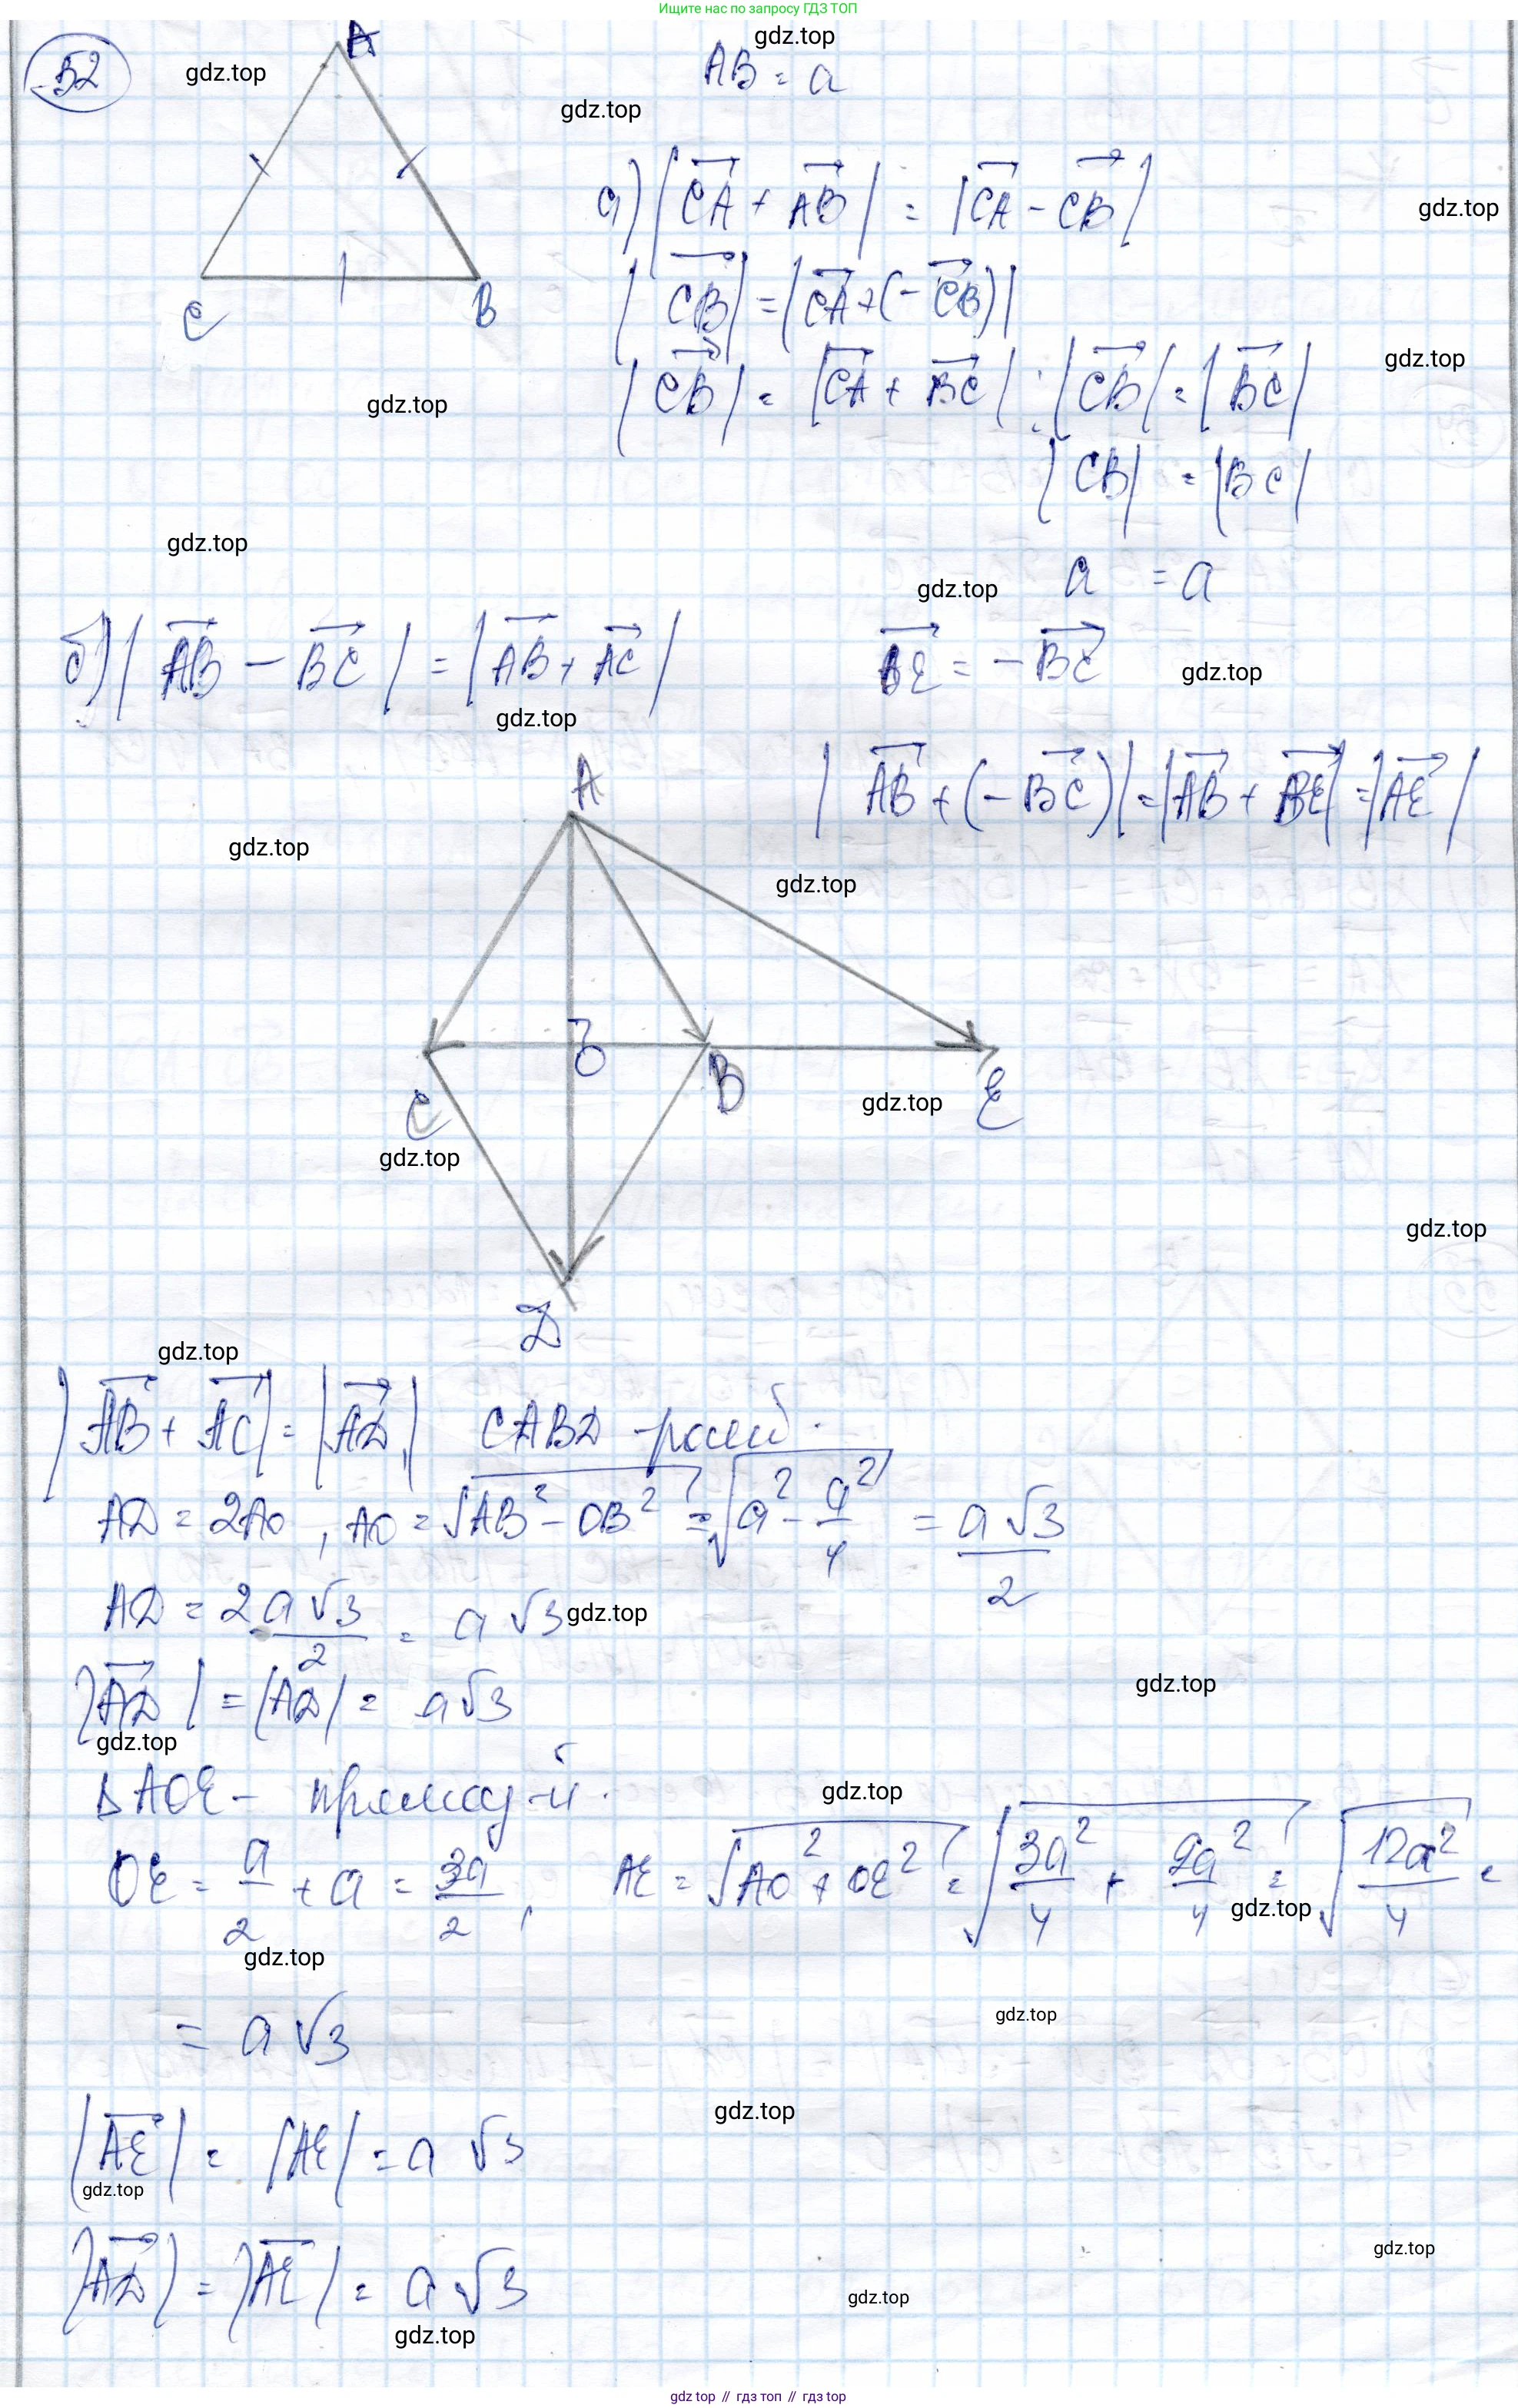 Ищите нас по запросу ГДЗ ТОП
52
A
C
B
gdz.top
AB = a
gdz.top
gdz.top
а) |CA + AB| = |CA - CB|
gdz.top
|CB| = |CA + (-CB)|
|CB| = |CA + BC| ; |CB| = |BC|
gdz.top
gdz.top
|CB| = |BC|
gdz.top
gdz.top
a = a
б) |AB - BC| = |AB + AC|
BE = -BC
gdz.top
gdz.top
|AB + (-BC)| = |AB + BE| = |AE|
A
gdz.top
gdz.top
O
C
B
E
gdz.top
gdz.top
gdz.top
D
gdz.top
|AB + AC| = |AD| CABD - ромб.
AD = 2AO, AO = √AB² - OB² = √a² - a²/4 = a√3/2
AD = 2a√3/2 = a√3
gdz.top
|AD| = |AD| = a√3
gdz.top
gdz.top
Δ AOE - прямоуг-й.
gdz.top
OE = a/2 + a = 3a/2, AE = √AO² + OE² = √3a²/4 + 9a²/4 = √12a²/4 =
gdz.top
gdz.top
= a√3
gdz.top
|AE| = |AE| = a√3
gdz.top
gdz.top
|AD| = |AE| = a√3
gdz.top
gdz.top
gdz.top
gdz top // гдз топ // гдз top